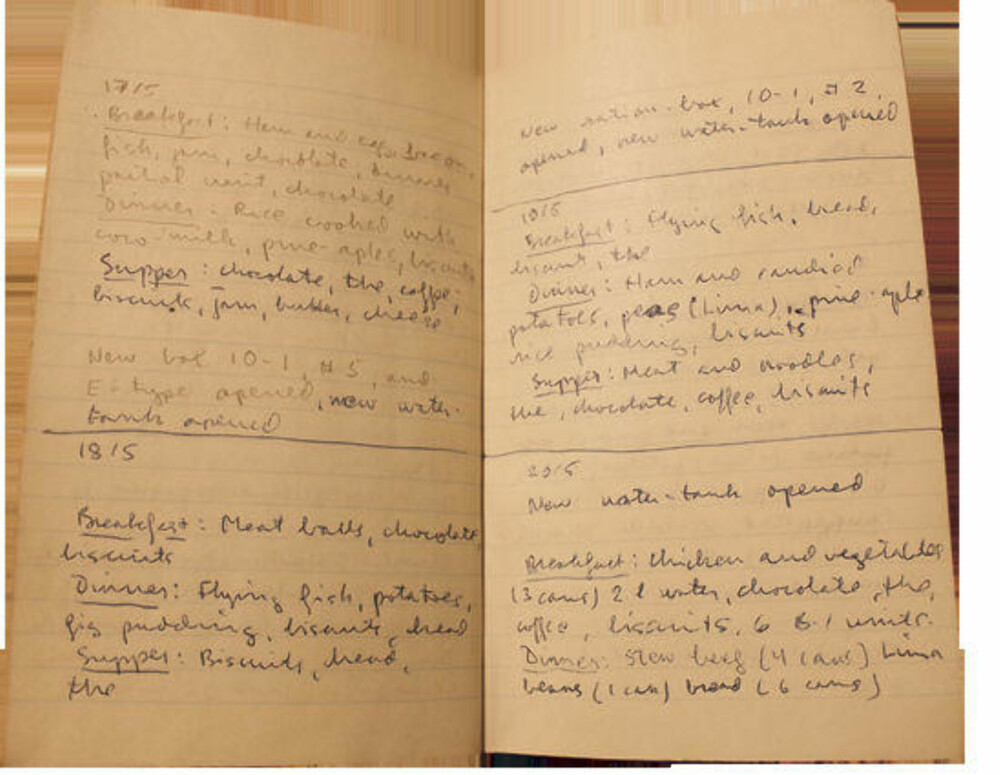 17/5
Breakfast: Ham and eggs, bacon,
fish, jam, chocolate, dinner
partial unit, chocolate
Dinner: Rice cooked with
coco-milk, pine-aples, biscuits
Supper: chocolate, the, coffee,
biscuits, jam, butter, cheese
New box 10-1, #5, and
E-type opened, new water-
tank opened
18/5
Breakfast: Meat balls, chocolate,
biscuits
Dinner: Flying fish, potatoes,
fig pudding, biscuits, bread
Supper: Biscuits, bread,
the
New ration-box, 10-1, #2,
opened, new water-tank opened
19/5
Breakfast: Flying fish, bread,
biscuit, the
Dinner: Ham and candied
potatoes, peas (Lima), pine-aple
rice pudding, biscuits
Supper: Meat and noodles,
the, chocolate, coffee, biscuits
20/5
New water-tank opened
Breakfast: Chicken and vegetables
(3 cans) 2 l water, chocolate, the,
coffee, biscuits, 6 B-1 units.
Dinner: Stew beef (4 cans) Lima
beans (1 can) bread (6 cans)